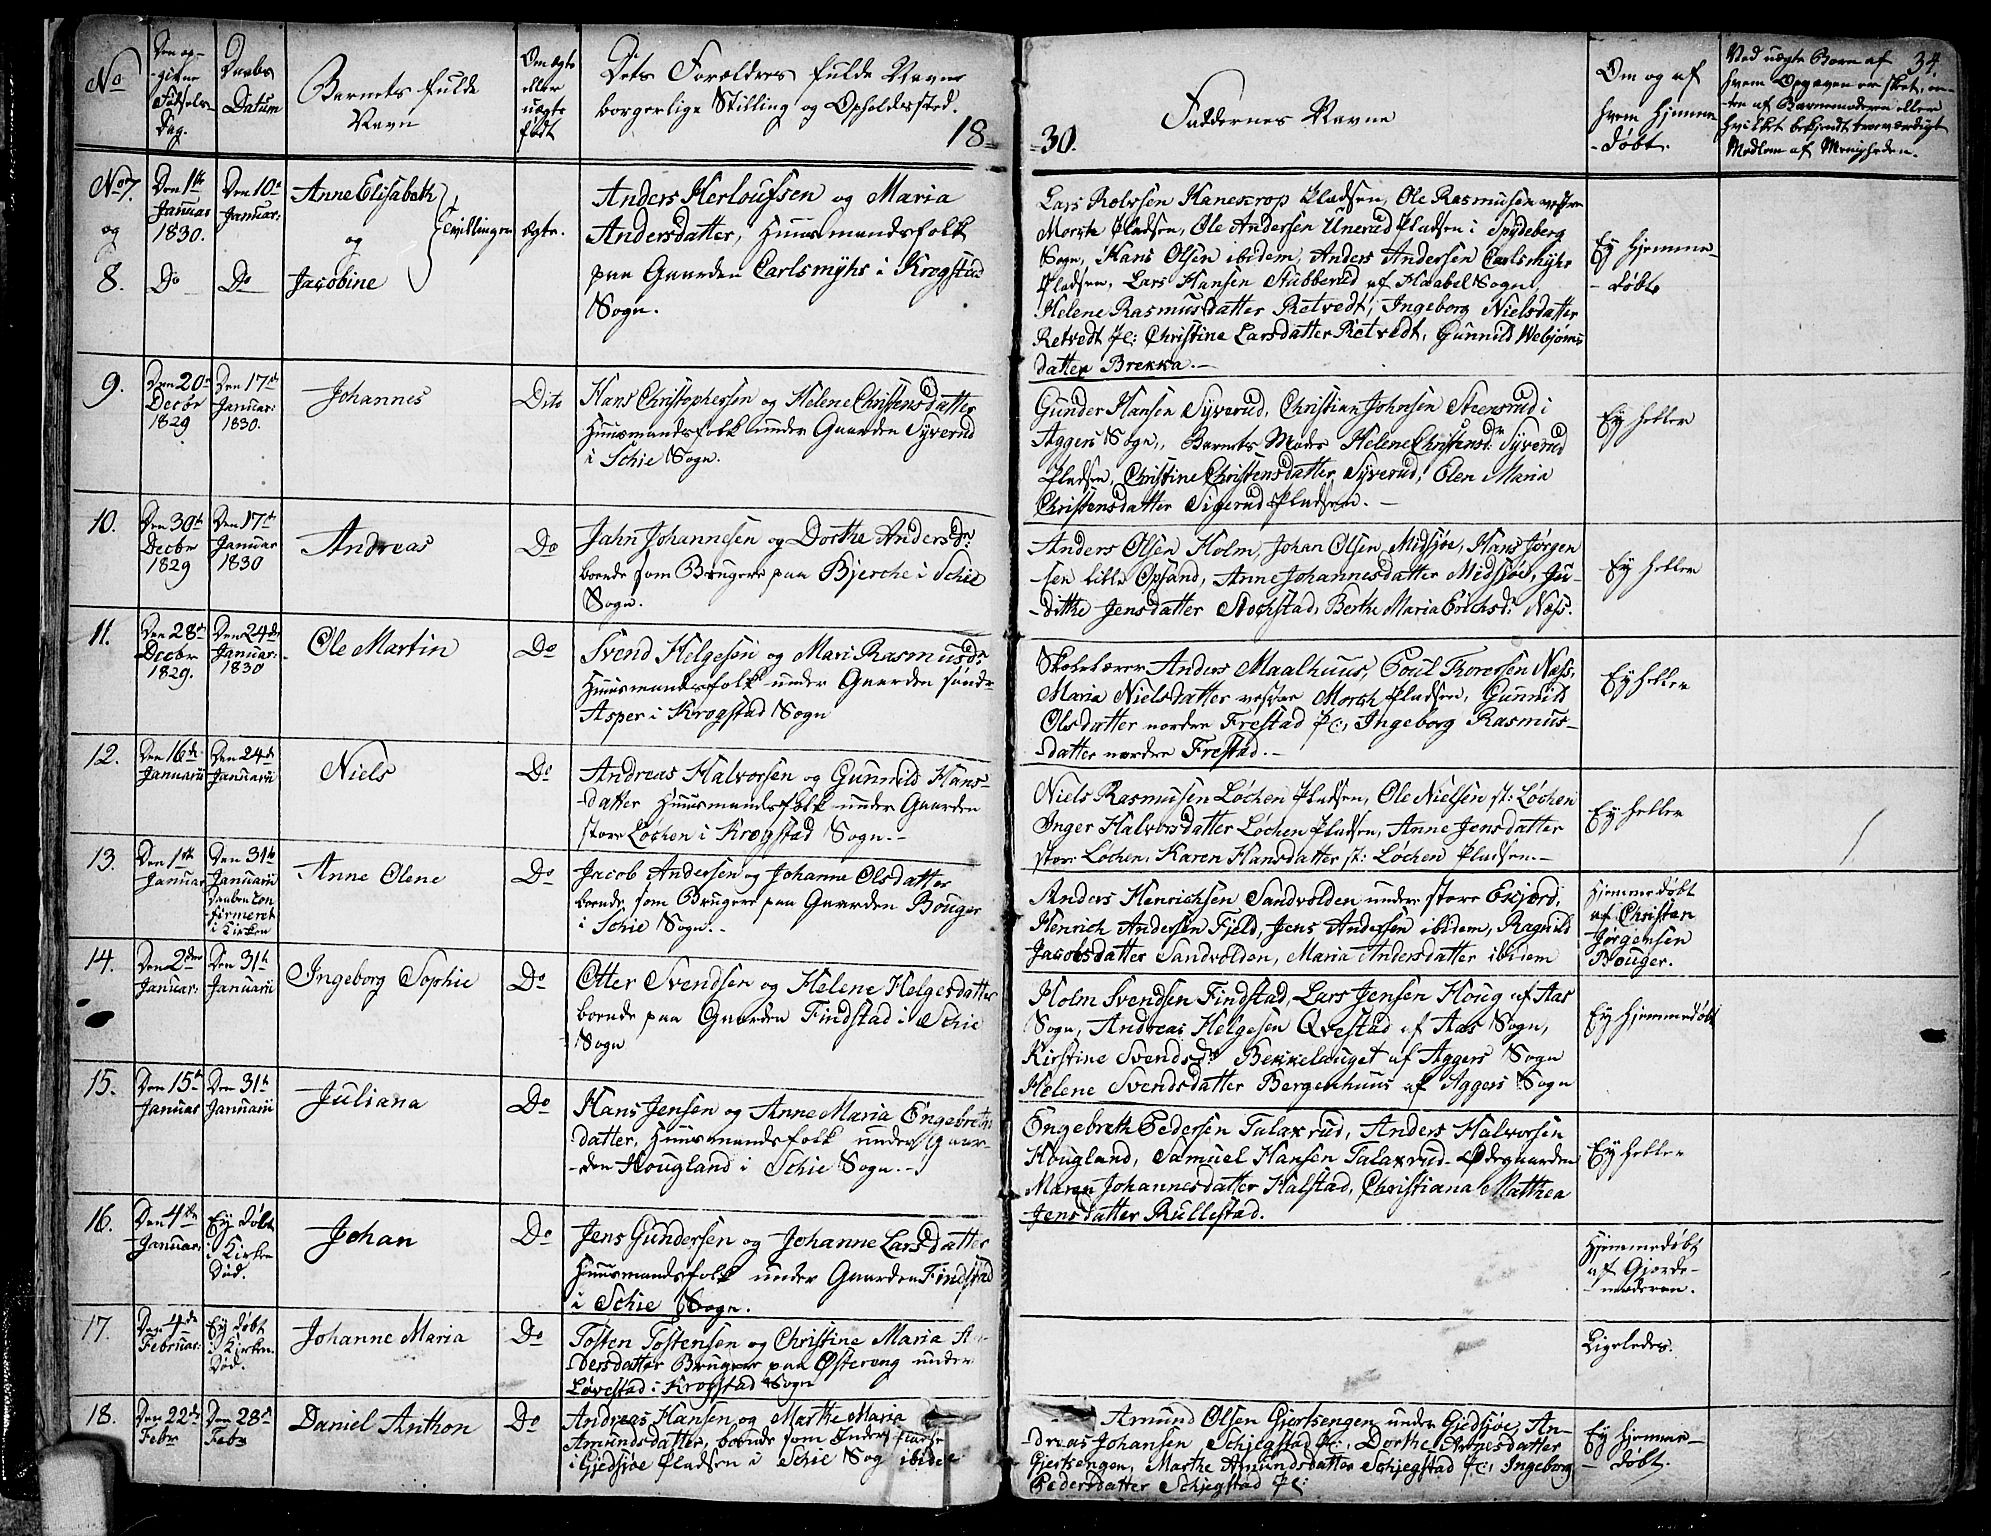 No
Den op-
-givne
Fødsels-
Dag.
Daabs
Datum
Barnets fulde
Navn
Om ægte
eller
uægte
født
Dets Forældres fulde Navne
borgerlige Stilling og Opholdssted.
18=
=30.
Faddernes Navne
Om og af
hvem hjemme
-døbt.
Ved uægte Børn af
hvem Opgaven er sket, en-
-ten af Barnemoderen eller
hvilket bekjendt troeværdigt
Medlem af Menigheden.
34.
No 7.
og
8.
Den 1ste
Januar
1830.
Do
Den 10de
Januar:
Do
Anne Elisabeth
og
Jacobine
Tvillinger
Ægte.
Anders Herloufsen og Maria
Andersdatter, Huusmandsfolk
paa Gaarden Carlsmyhr i Krogstad
Sogn.
Lars Rolvsen Hanescrop Pladsen, Ole Rasmusen vestre
Morch Pladsen, Ole Andersen Unerud Pladsen i Spydeberg
Sogn, Hans Olsen ibidem, Anders Andersen Carlsmyhr
Pladsen, Lars Hansen Stubberud af Haabel Sogn,
Helene Rasmusdatter Retvedt, Ingeborg Nielsdatter
Retvedt Pl: Christine Larsdatter Retvedt, Gunnild Webjørns
datter Brekka.-
Ey hjemme-
-døbt
9.
Den 20de
Decbr
1829
Den 17de
Januar:
1830.
Johannes
Dito
Hans Christophersen og Helene Christensdatter
Huusmandsfolk under Gaarden Syverud
i Schie Sogn.
Gunder Hansen Syverud, Christian Johnsen Steensrud i
Aggers Sogn, Barnets Moder Helene Christensdr Syverud
Pladsen, Christine Christensdatter Syverud, Elen Maria
Christensdatter Sigerud Pladsen.-
Ey heller
10.
Den 30te
Decbr
1829
Den 17de
Januar
1830
Andreas
Do
Jahn Johannesen og Dorthe Andersdr:
boende som Brugere paa Bjerche i Schie
Sogn.
Anders Olsen Holm, Johan Olsen Midsjøe, Hans Jørgen
-sen lille Opsand, Anne Johannesdatter Midsjøe, Ju-
-dithe Jensdatter Stochstad, Berthe Maria Erichsdr: Næss.
Ey heller
11.
Den 28de
Decbr
1829.
Den 24de
Januar:
1830
Ole Martin
Do
Svend Helgesen og Mari Rasmusdr:
Huusmandsfolk under Gaarden søndre
Asper i Krogstad Sogn
Skolelærer Anders Maalhuus, Poul Thoresen Næss,
Maria Nielsdatter vestre Morch Pladsen, Gunnild
Olsdatter nordre Frestad Pl:, Ingeborg Rasmus-
-datter nordre Frestad.-
Ey heller
12.
Den 16de
Januarii
Den 24de
Januarii
Niels
Do
Andreas Halvorsen og Gunnild Hans-
-datter Huusmandsfolk under Gaarden
store Løchen i Krogstad Sogn.-
Niels Rasmusen Løchen Pladsen, Ole Nielsen st: Løchen
Inger Halvorsdatter Løchen Pladsen, Anne Jensdatter
store Løchen, Karen Hansdatter st: Løchen Pladsen.-
Ey heller
13.
Den 1ste
Januar
Den 31te
Januarii
Daaben con
firmeret
i Kirken
Anne Olene
Do
Jacob Andersen og Johanne Olsdatter
boende som Brugere paa Gaarden Bouger
i Schie Sogn.-
Anders Henrichsen Sandvolden under store Esejord,
Henrich Andersen Fjeld, Jens Andersen ibidem, Ragnild
Jacobsdatter Sandvolden, Maria Andersdatter ibidem
Hjemmedøbt
af Christen
Jørgensen
Bouger.
14.
Den 2den
Januar:
Den 31te
Januarii
Ingeborg Sophie
Do
Otter Svendsen og Helene Helgesdatter
boende paa Gaarden Findstad i Schie
Sogn
Holm Svendsen Findstad, Lars Jensen Houg af Aas
Sogn, Andreas Helgesen Qvestad af Aas Sogn,
Kirstine Svendsdr Bekkelauget af Aggers Sogn
Helene Svendsdatter Bergenhuus af Aggers Sogn
Ey hjemmedøbt
15.
Den 15de
Januar
Den 31te
Januarii
Juliana
Do
Hans Jensen og Anne Maria Engebreths
datter, Huusmandsfolk under Gaar-
-den Hougland i Schie Sogn.-
Engebreth Pedersen Talaxrud, Anders Halvorsen
Hougland, Samuel Hansen Talaxrud-Ødegaarden
Maren Johannesdatter Halstad, Christiana Mathea
Jensdatter Rullestad.
Ey heller
16.
Den 4de
Januar:
Ey døbt
i Kirken
Død.
Johan
Do
Jens Gundersen og Johanne Larsdatter
Huusmandsfolk under Gaarden Findstad
i Schie Sogn.
Hjemmedøbt
af Gjorde-
-moderen.
17.
Den 4de
Februar:
Ey døbt
i Kirken
Død.
Johanne Maria
Do
Tosten Tostensen og Christine Maria A-
-dersdatter Brugere paa Østereng under
Løvestad i Krogstad Sogn
Ligeledes.
18.
Den 22de
Febr
Den 28de
Febr
Daniel Anthon
Do
Andreas Hansen og Marthe Maria
Amundsdatter, boende som Inderst folk
i Gjedsjøe Pladsen i Schie Sog ibidem
Amund Olsen Gjertsengen under Gjedsjøe, An-
-dreas Johansen Schjegstad Pl:, Dorthe Arnesdatter
Gjertsengen, Marthe Amundsdatter Schjegstad Pl:, Ingeborg
Pedersdatter Schjegstad Pl:
Ey hjemme-
-døbt.